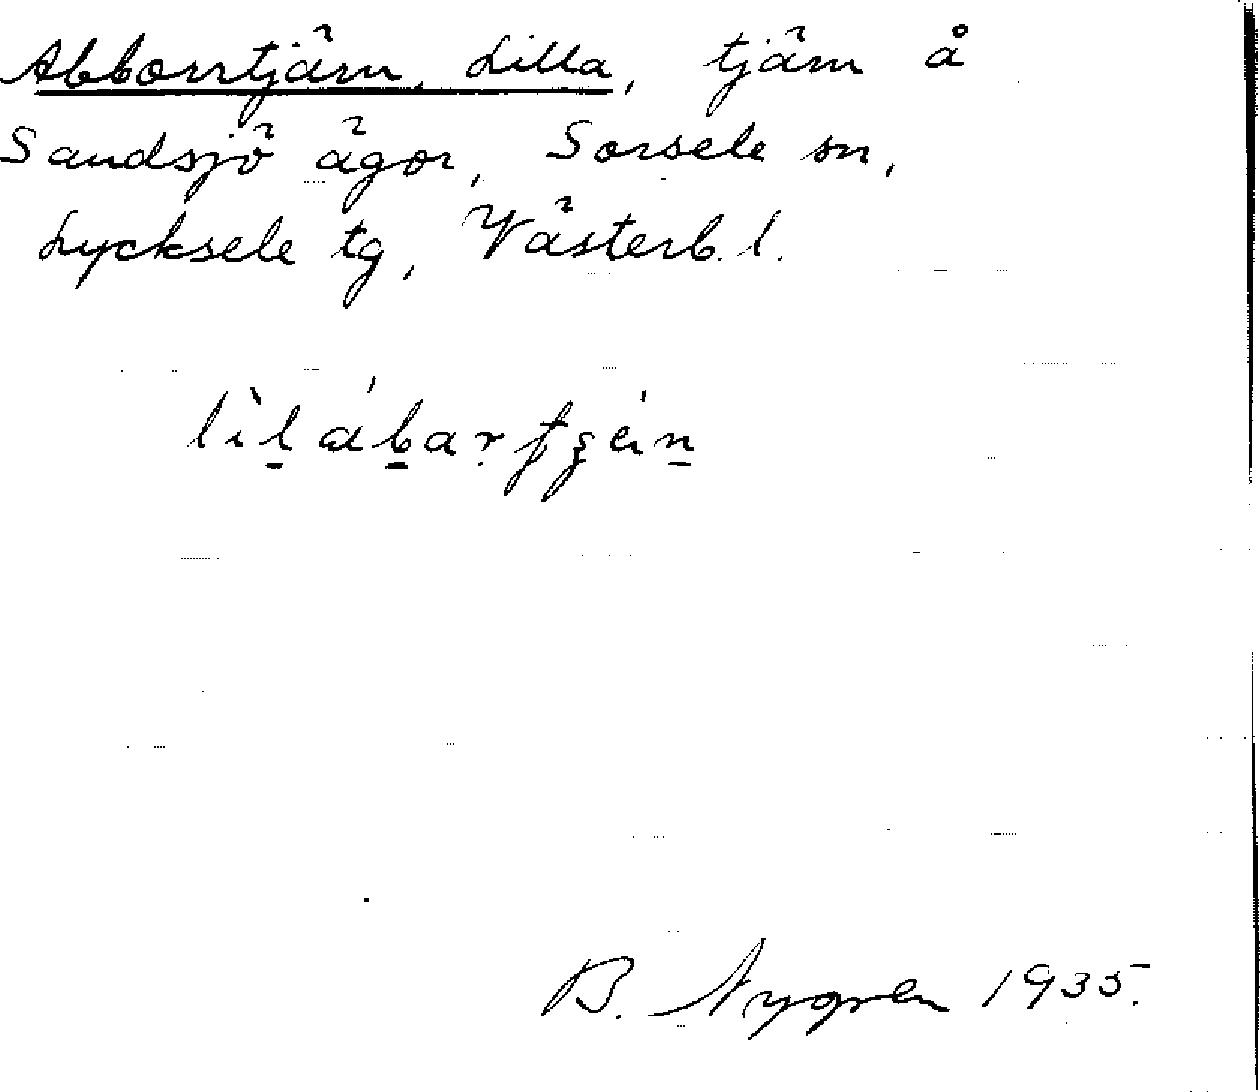 Abborrtjärn, Lilla, tjärn å
Sandsjö ägor, Sorsele sn,
Lycksele tg, Västerb. l.
B. Nygren 1935.